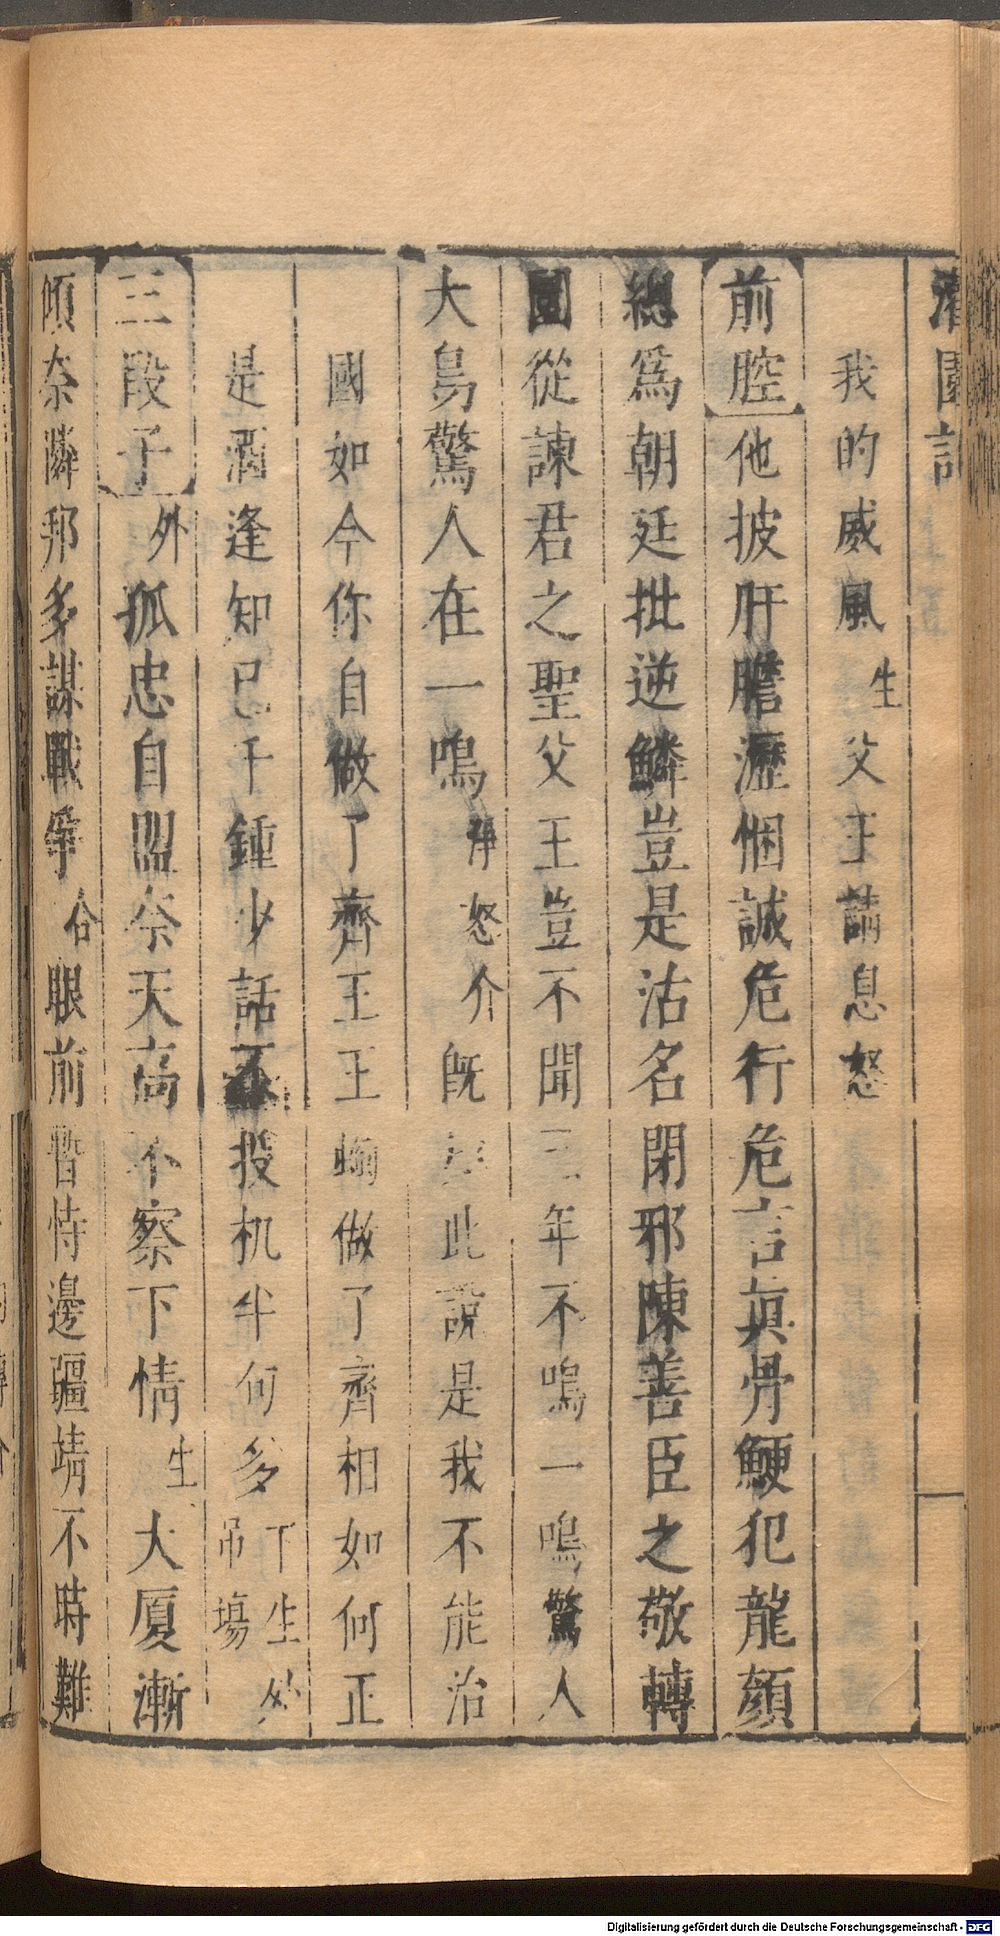 灌園記
我的威風生父王請息怒
前腔他披肝膽瀝悃誠危行危言眞骨鯁犯龍顔
總爲朝廷批逆鱗豈是沽名閉邪陳善臣之敬轉
圜從諫君之聖父王豈不聞三年不鳴一鳴驚人
大鳥驚人在一鳴淨怒介旣如此說是我不能治
國如今你自做了齊王王蠋做了齊相如何正
是酒逢知已千鍾少話不投机半何多下生外吊塲
三段子外孤忠自盟奈天高不察下情生大厦漸
傾奈隣邦多謀戰爭合眼前暫恃邊疆靖不時難
Digitalisierung gefördert durch die Deutsche Forschungsgemeinschaft - DFG